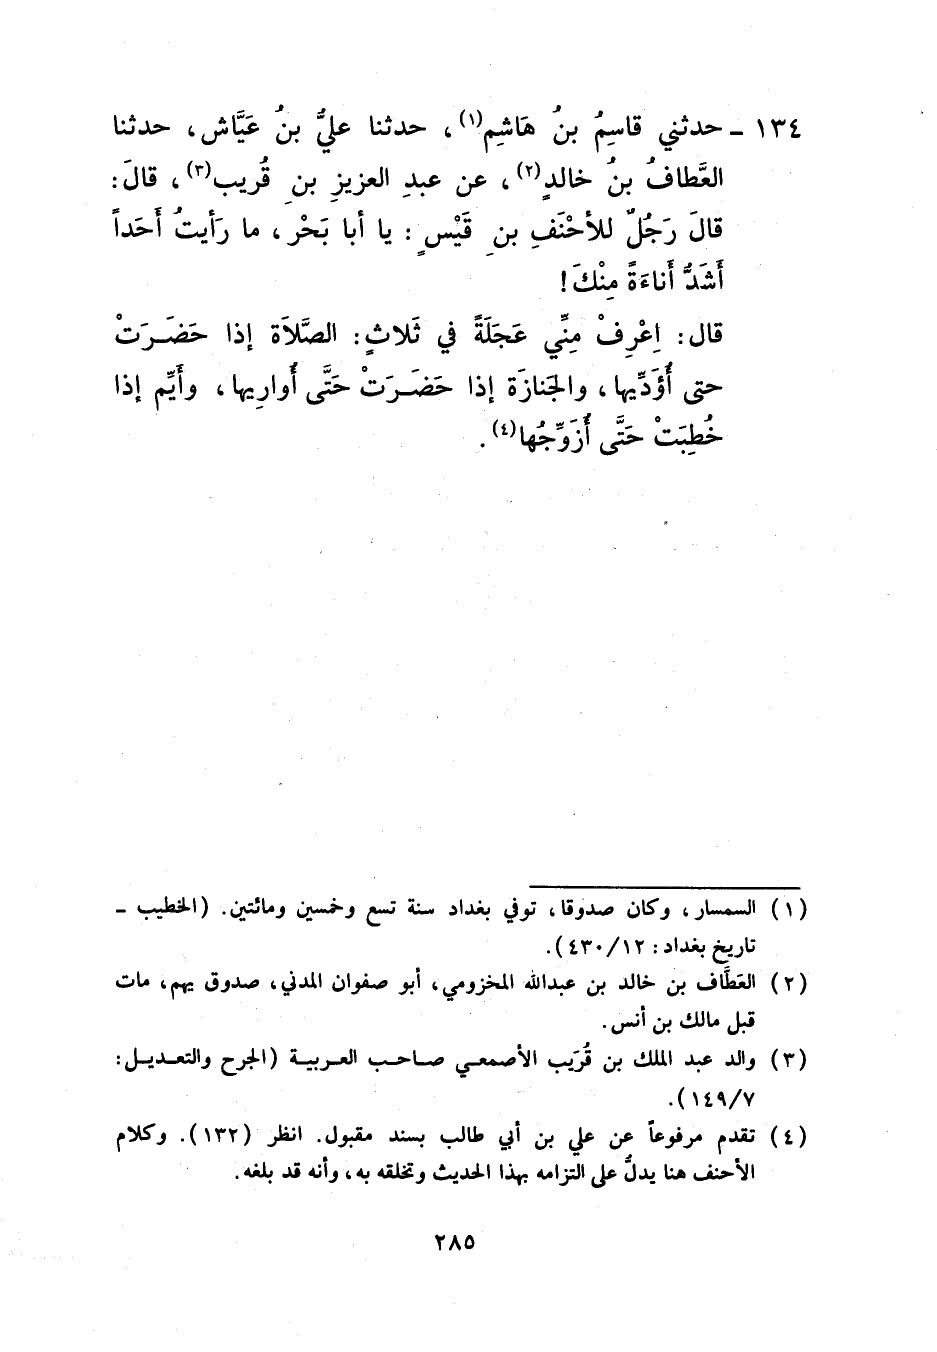 ١٣٤ ـ حدثني قاسِمُ بنُ هَاشِمٍ(١)، حدثنا عليُّ بنُ عَيَّاش، حدثنا
العَّطافُ بنُ خالدٍ(٢)، عن عبدِ العزيزِ بنِ قُريب(٣)، قالَ:
قالَ رَجُلٌ للأحْنَفِ بنِ قَيْسٍ: يا أبا بَحْر، ما رَأيتُ أحَداً
أشَدُّ أناءَةً مِنْكَ!
قال: اِعْرِفْ مِنِّي عَجَلَةً في ثَلاثٍ: الصَّلاَة إذا حَضَرَتْ
حتى أُؤَدِّيها، والجَنازَة إذا حَضَرَتْ حَتَّى أُوارِيها، وأيِّم إذا
خُطِبَتْ حَتَّى أُزَوِّجُها(٤).
(١) السمسار، وكان صدوقا، توفي بغداد سنة تسع وخمسين ومائتين. (الخطيب ـ
تاريخ بغداد: ٤٣٠/١٢).
(٢) العَطَّاف بن خالد بن عبدالله المخزومي، أبو صفوان المدني، صدوق يهم، مات
قبل مالك بن أنس.
(٣) والد عبد الملك بن قُرَيب الأصمعي صاحب العربية (الجرح والتعديل:
١٤٩/٧).
(٤) تقدم مرفوعاً عن علي بن أبي طالب بسند مقبول. انظر (١٣٢). وكلام
الأحنف هنا يدلُّ على التزامه بهذا الحديث وتخلقه به، وأنه قد بلغه.
٢٨٥